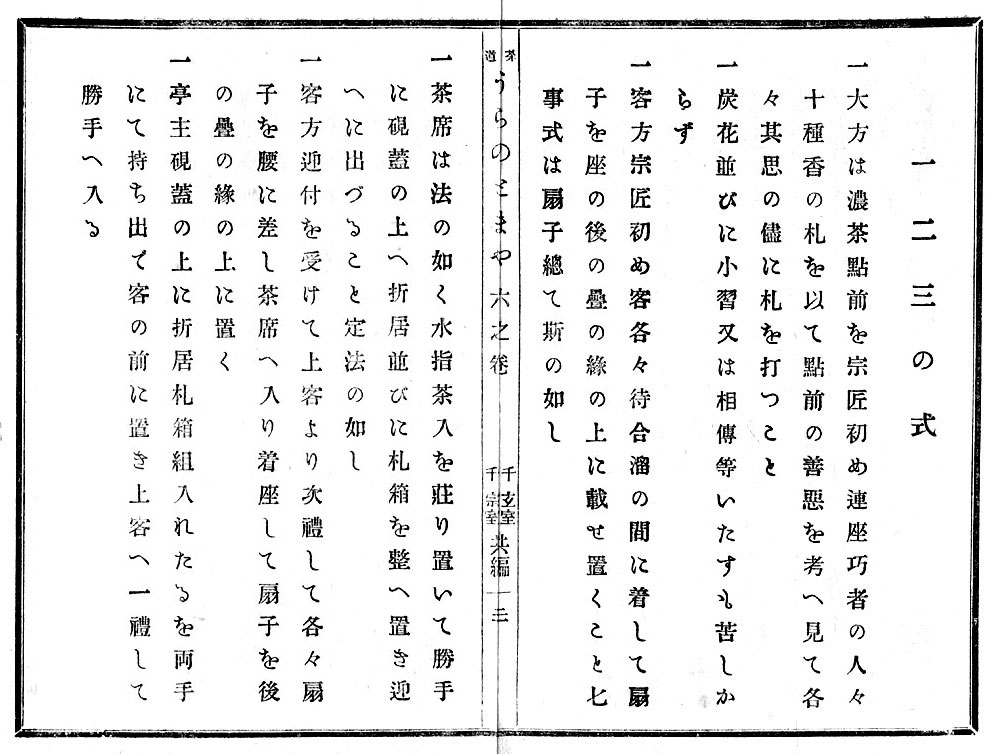 一二三の式
一大方は濃茶點前を宗匠初め連座巧者の人々
十種香の札を以て點前の善惡を考へ見て各
々其思の儘に札を打つこと
一炭花並びに小習又は相傳等いたすも苦しか
らず
一客方宗匠初め客各々待合溜の間に着して扇
子を座の後の疊の緣の上に載せ置くこと七
事式は扇子總て斯の如し
茶道
うらのとまや六之卷
千玄室
千宗室
共編
一三
一茶席は法の如く水指茶入を莊り置いて勝手
に硯蓋の上へ折居並びに札箱を整へ置き迎
へに出づること定法の如し
一客方迎付を受けて上客より次禮して各々扇
子を腰に差し茶席へ入り着座して扇子を後
の疊の緣の上に置く
一亭主硯蓋の上に折居札箱組入れたるを両手
にて持ち出て客の前に置き上客へ一禮して
勝手へ入る